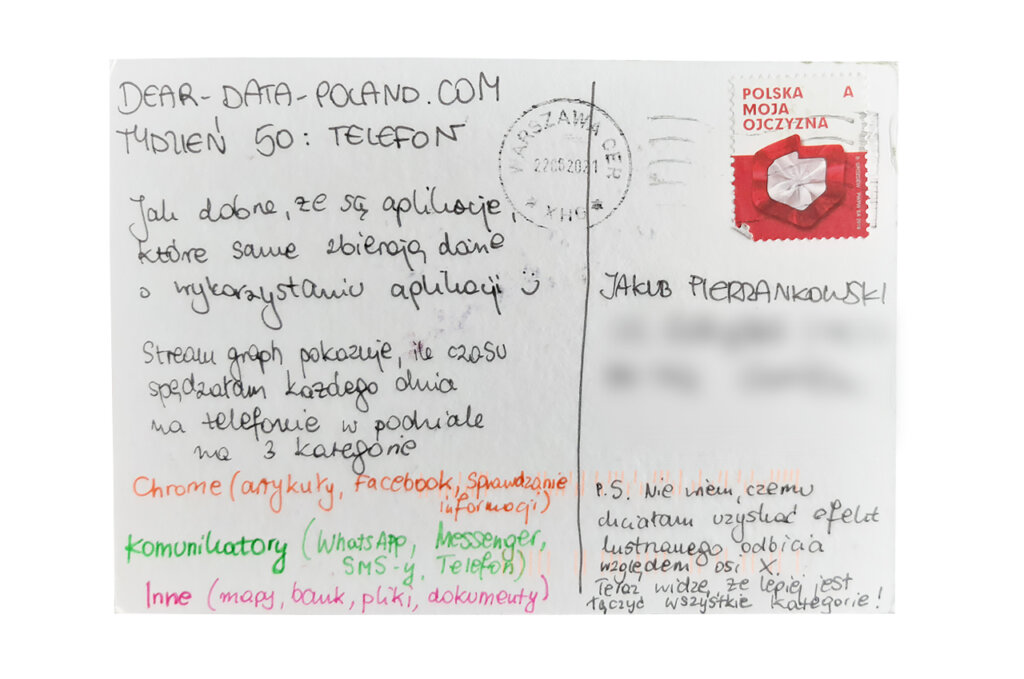 DEAR-DATA-POLAND.COM
TYDZIEŃ 50: TELEFON
Jak dobrze, że są aplikacje,
które same zbierają dane
o wykorzystaniu aplikacji
Stream graph pokazuje, ile czasu
spędzałam każdego dnia
na telefonie w podziale
na 3 kategorie
Chrome (artykuły, Facebook, sprawdzanie
informacji)
Komunikatory (WhatsApp, Messenger,
SMS-y, Telefon)
Inne (mapy, bank, pliki, dokumenty)
WARSZAWA CER
POLSKA A
MOJA
OJCZYZNA
JAKUB PIERZANKOWSKI
P.S. Nie wiem, czemu
chciałam uzyskać efekt
lustrzanego odbicia
względem osi X.
Teraz widzę, że lepiej jest
łączyć wszystkie kategorie!